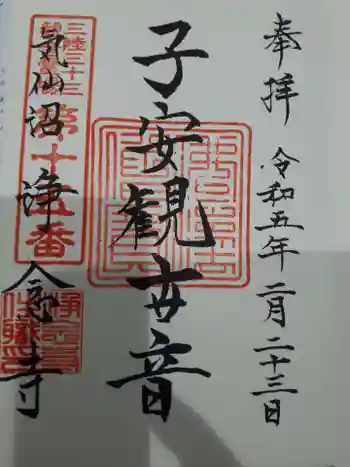 奉拝 令和五年二月二十三日
子安観世音
三陸三十三
第十五番
気仙沼 浄念寺